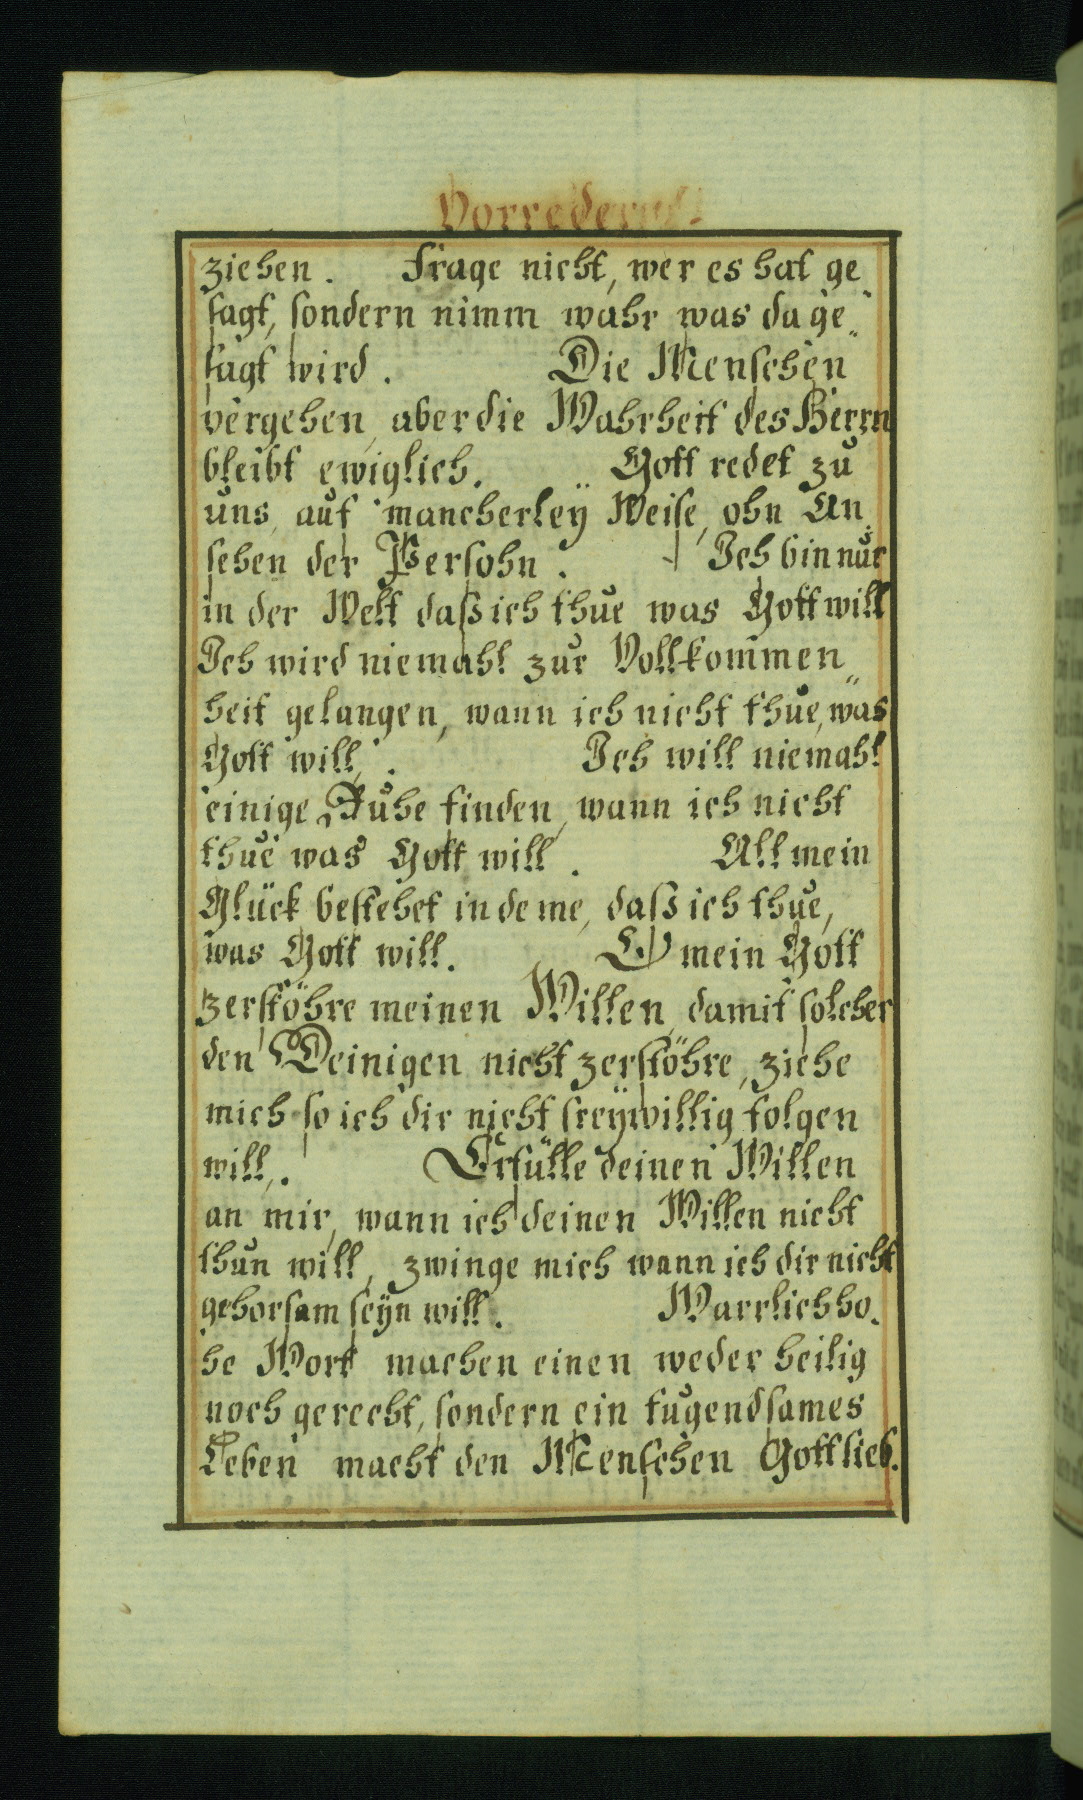 Vorrede
ziehen. Frage nicht, wer es hat ge
sagt, sondern nimm wahr was da ge„
sagt wird. Die Menschen
vergehen, aber die Wahrheit des Herrn
bleibt ewiglich. Gott redet zu
uns, auf mancherleÿ Weise, ohn An„
sehen der Persohn. Ich bin nur
in der Welt daß ich thue was Gott will
Ich wird niemahl zur Vollkommen„
heit gelangen, wann ich nicht thue, was
Gott will,. Ich will niemahl
einige Ruhe finden, wann ich nicht
thue was Gott will. All mein
Glück bestehet in deme, daß ich thue,
was Gott will. O mein Gott
zerstöhre meinen Willen, damit solcher
den Deinigen nicht zerstöhre, ziehe
mich so ich dir nicht freÿwillig folgen
will,. Erfülle deinen Willen
an mir, wann ich deinen Willen nicht
thun will, zwinge mich wann ich dir nicht
gehorsam seÿn will. Warrlich ho„
he Wort machen einen weder heilig
noch gerecht, sondern ein tugendsames
Leben macht den Menschen Gott lieb.